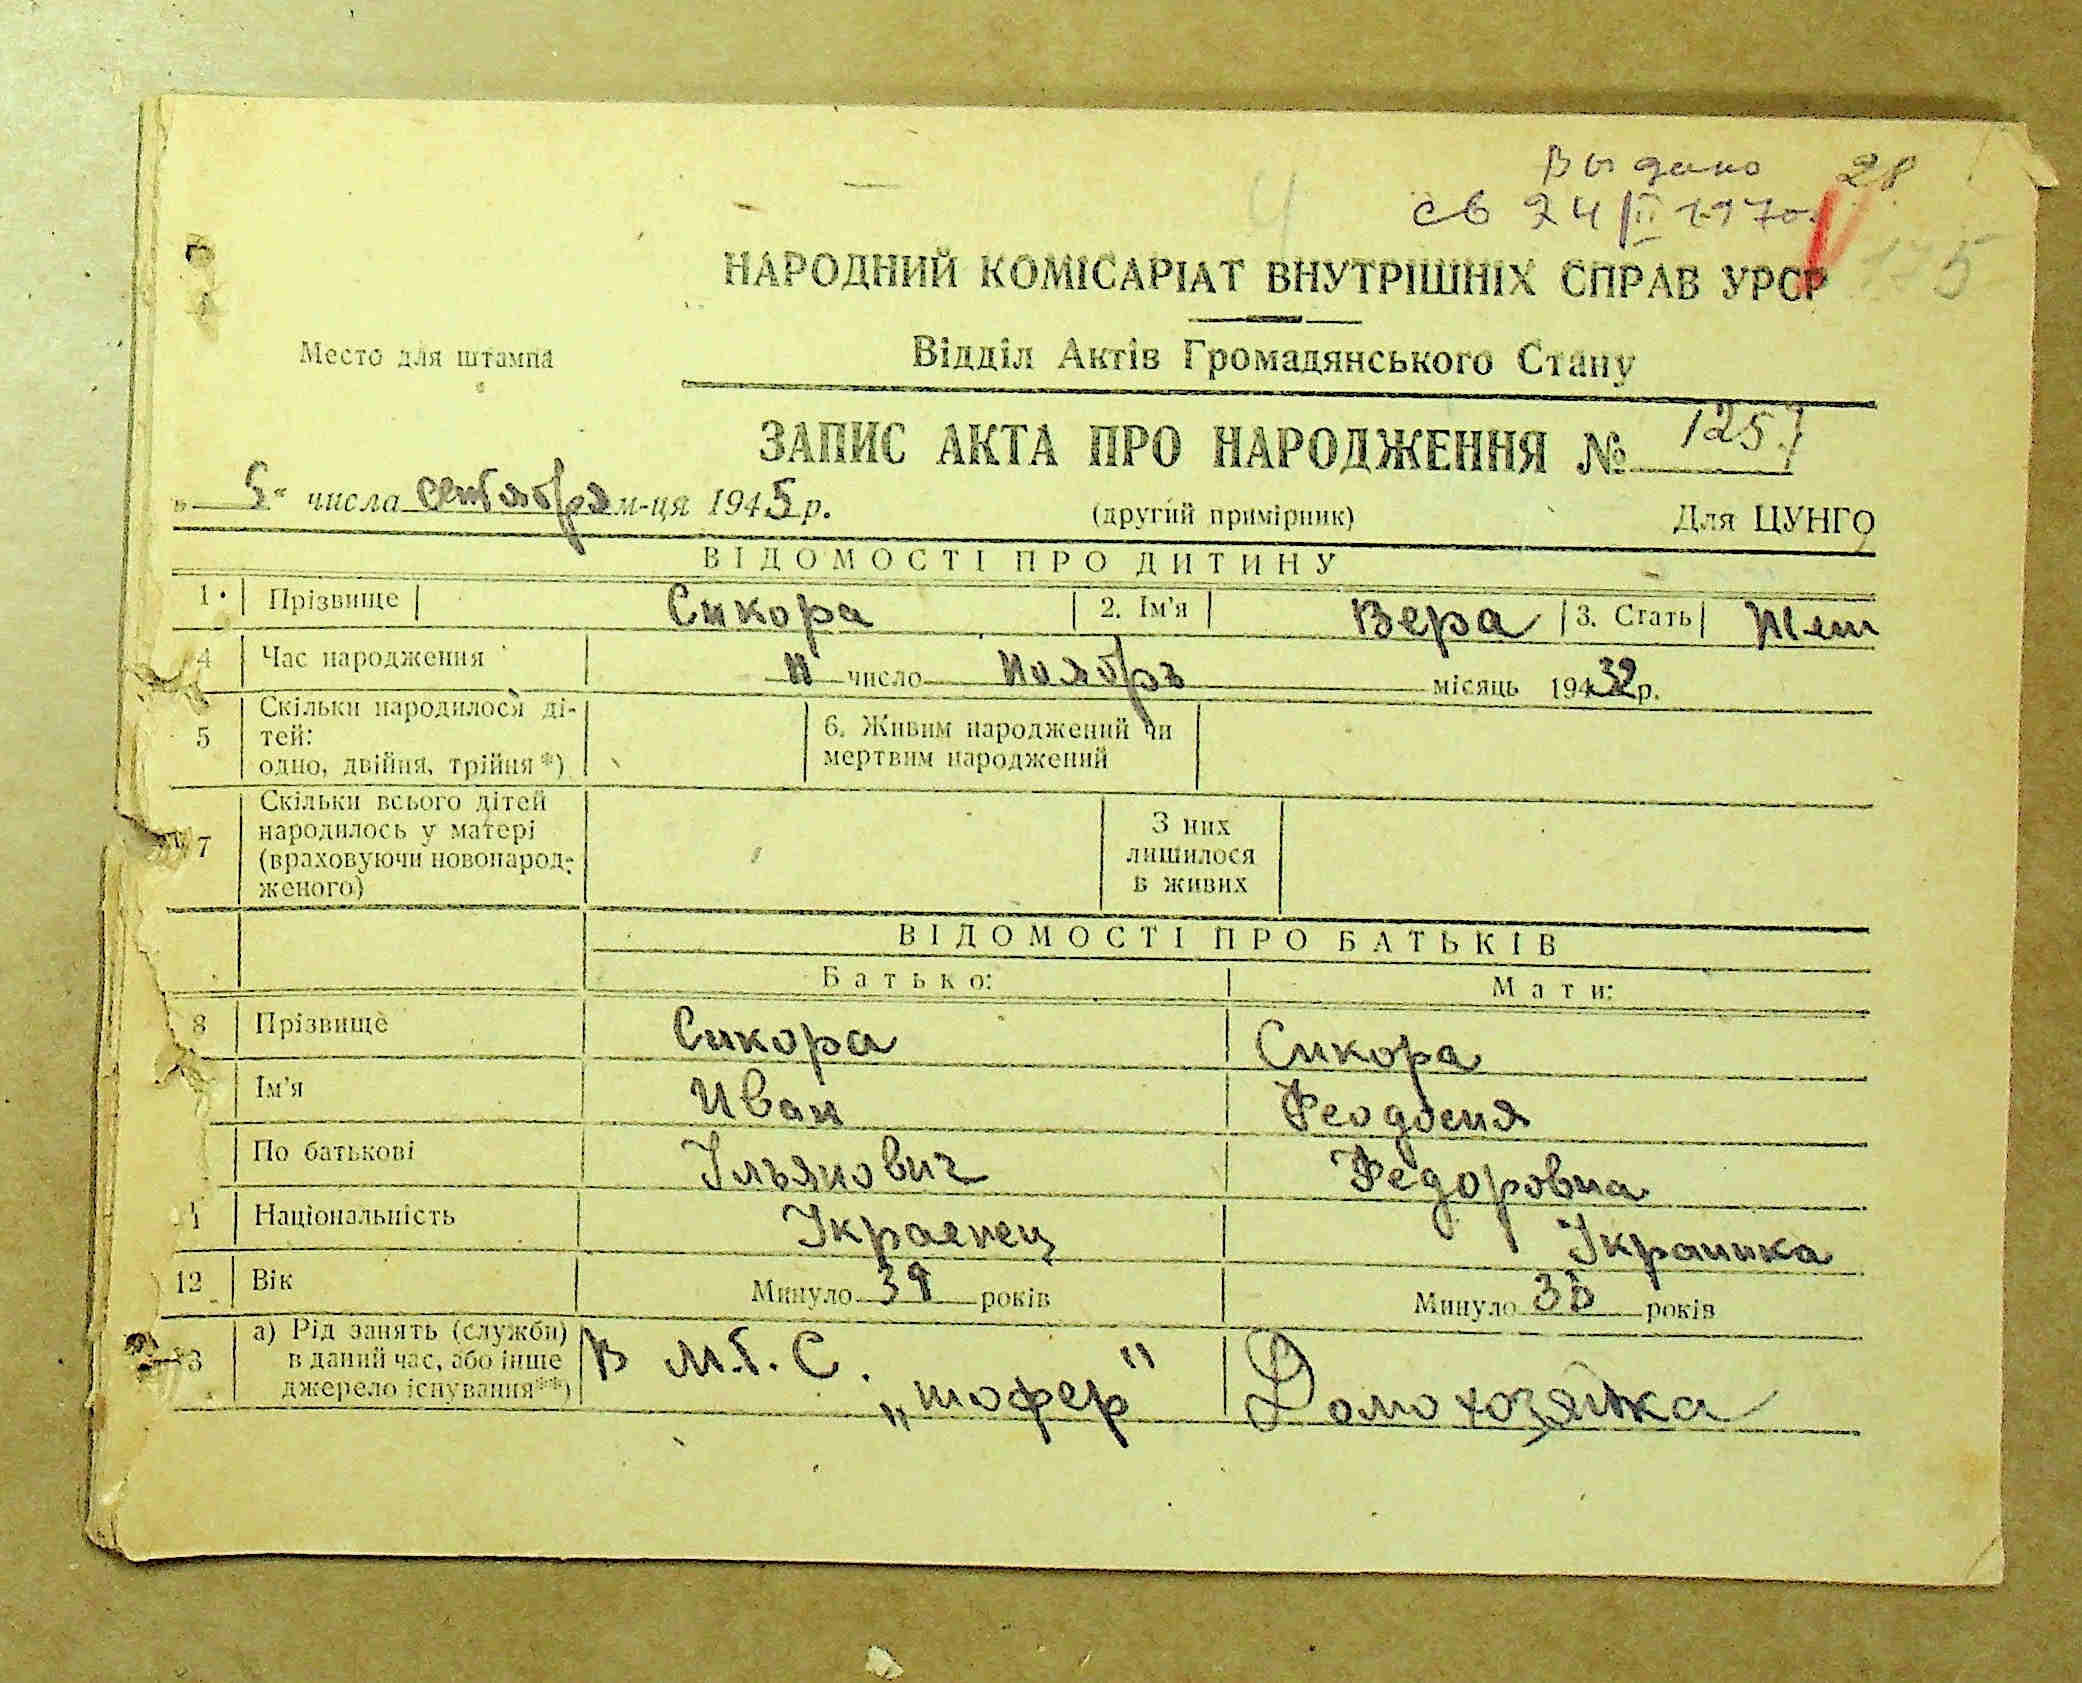 Выдано 28
св 24/II 1970. 175
НАРОДНИЙ КОМІСАРІАТ ВНУТРІШНІХ СПРАВ УРСР
Место для штампа
Відділ Актів Громадянського Стану
ЗАПИС АКТА ПРО НАРОДЖЕННЯ № 1257
„ 5 “ числа сентября м-ця 1945 р. (другий примірник) Для ЦУНГО
ВІДОМОСТІ ПРО ДИТИНУ
1. Прізвище Сикора 2. Ім'я Вера 3. Стать Жен
4 Час народження 11 число ноябрь місяць 1932 р.
5 Скільки народилося ді-
тей:
одно, двійня, трійня*)
6. Живим народжений чи
мертвим народжений
7 Скільки всього дітей
народилось у матері
(враховуючи новонарод-
женого)
З них
лишилося
в живих
ВІДОМОСТІ ПРО БАТЬКІВ
Батько: Мати:
8 Прізвище Сикора Сикора
Ім'я Иван Феодосия
По батькові Ільянович Федоровна
1 Національність Украенец Украинка
12 Вік Минуло 39 років Минуло років
3 а) Рід занять (служби)
в даний час, або інше
джерело існування**)
В М.т.С. „шофер" Домохозяйка